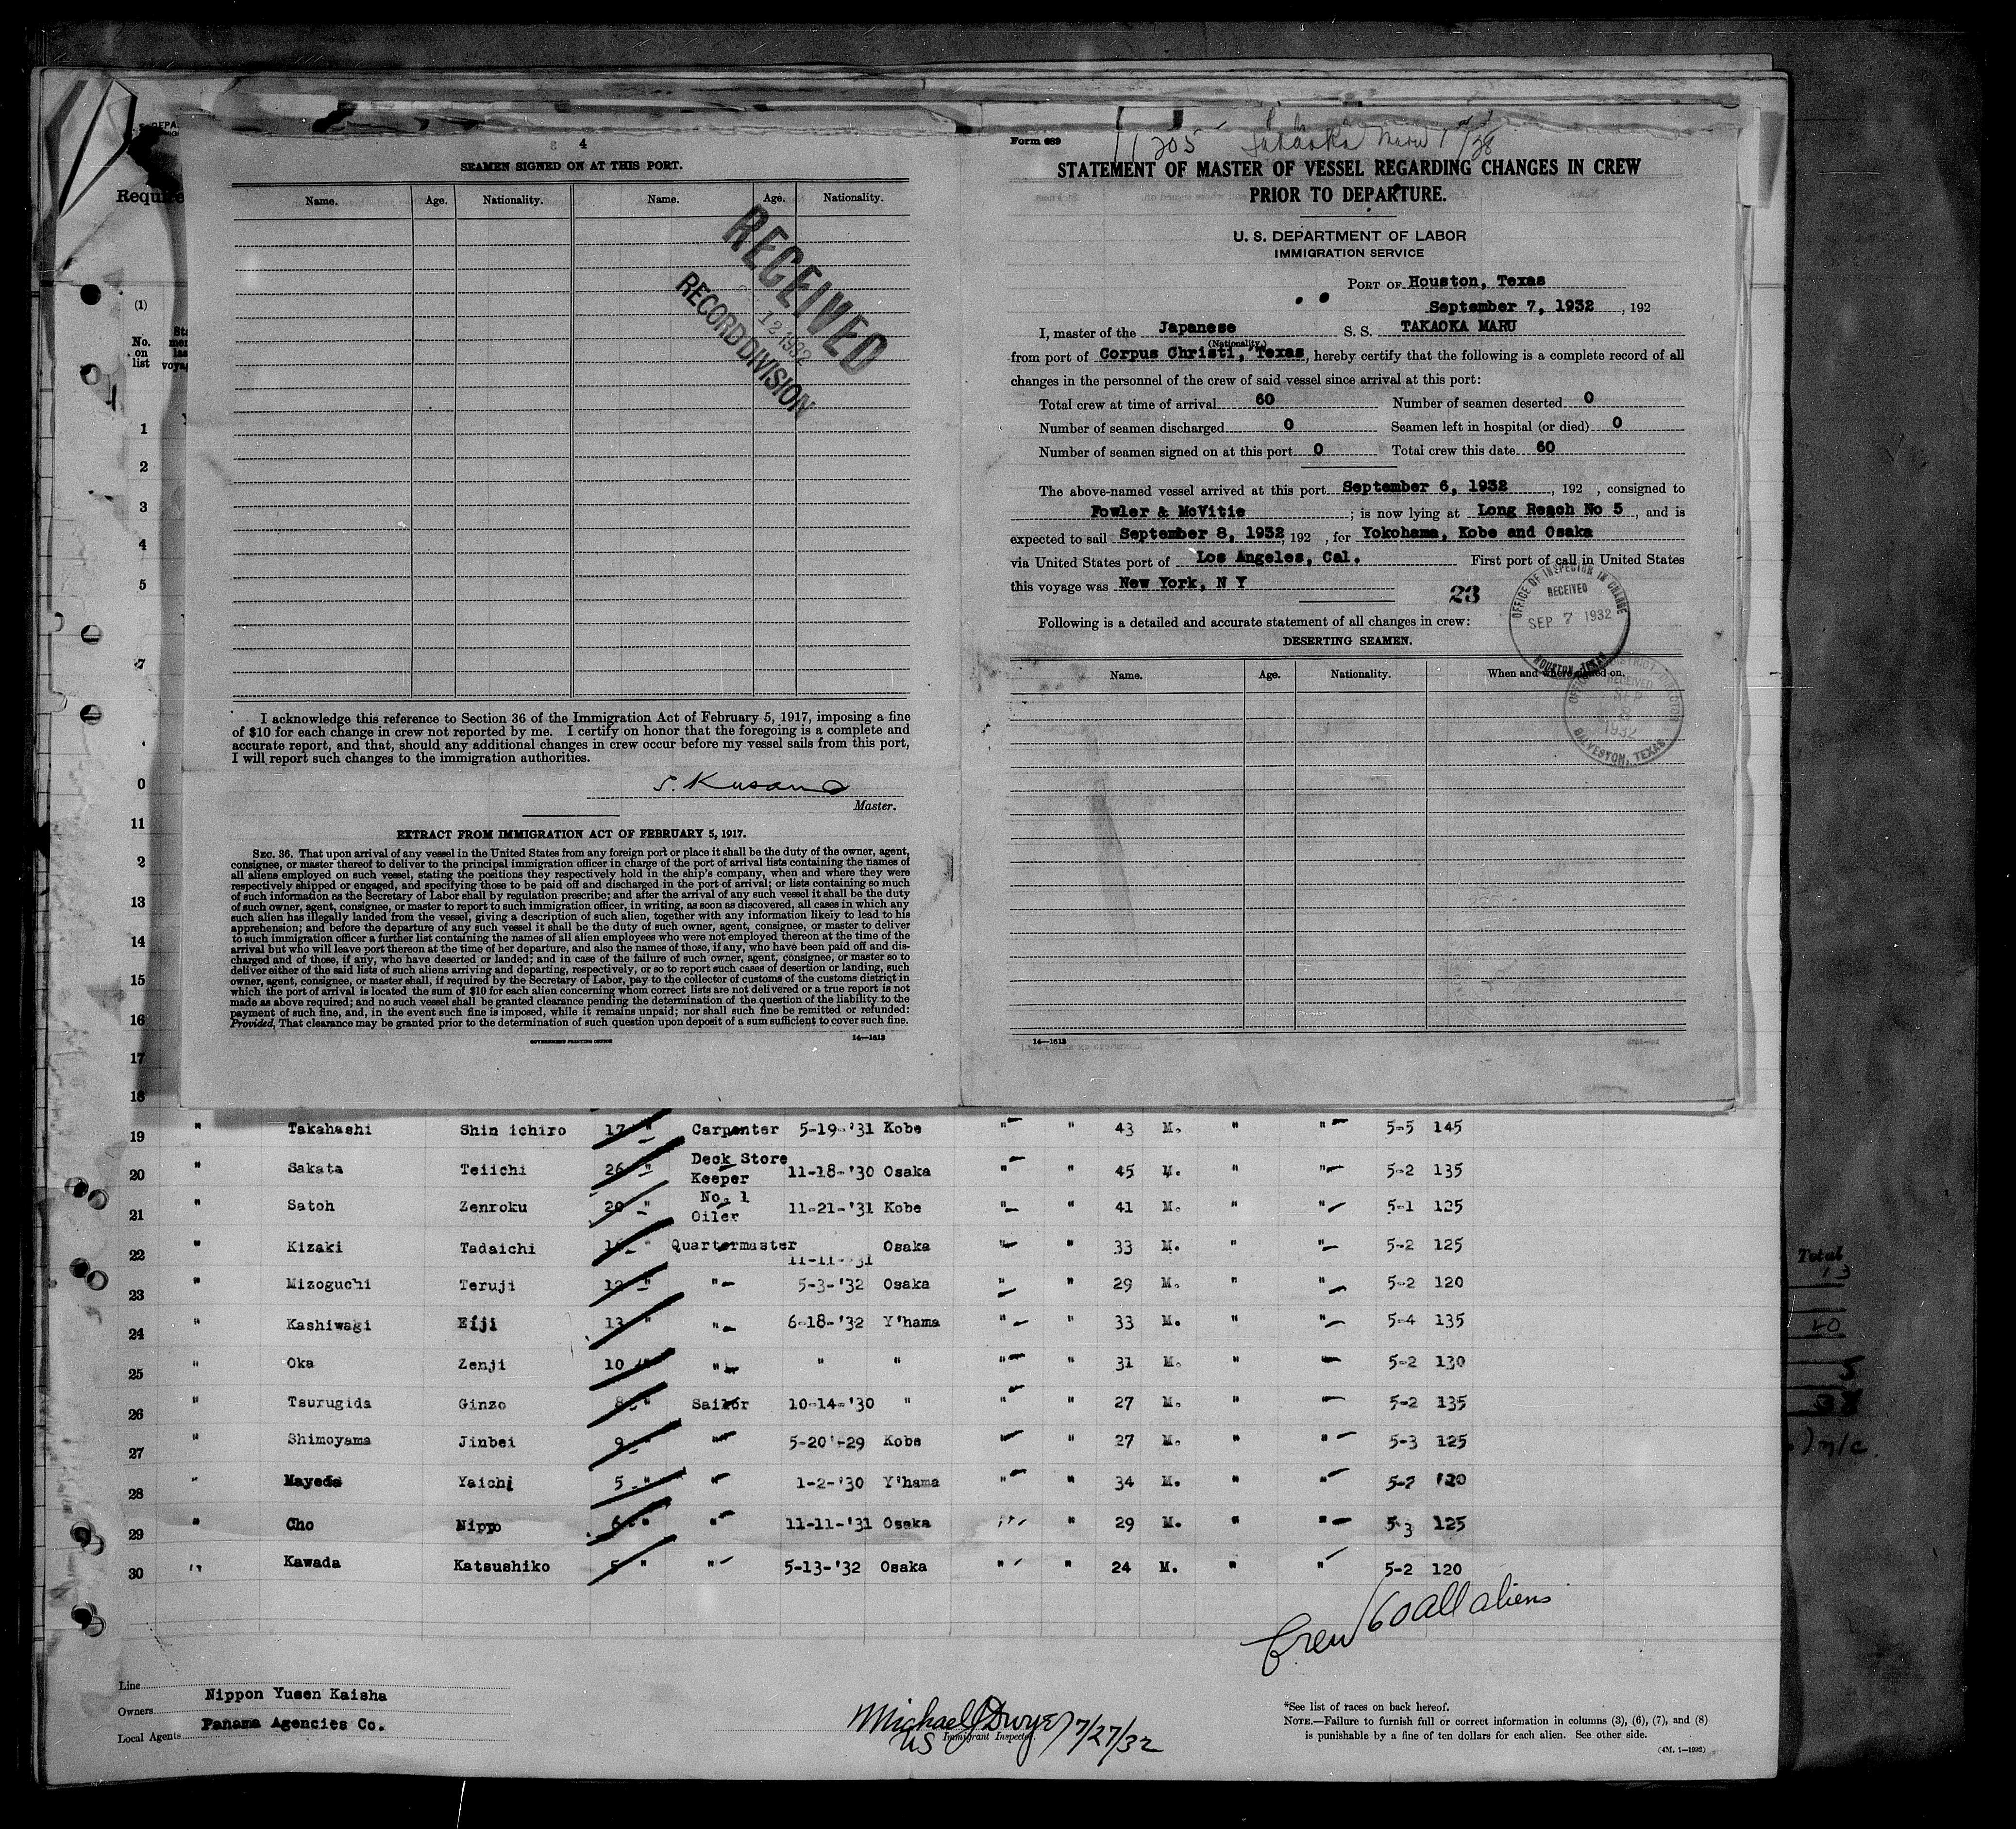 4
SEAMEN SIGNED ON AT THIS PORT.
Name. Age. Nationality. Name. Age. Nationality.
RECEIVED
12 1932
RECORD DIVISION
I acknowledge this reference to Section 36 of the Immigration Act of February 5, 1917, imposing a fine
of $10 for each change in crew not reported by me. I certify on honor that the foregoing is a complete and
accurate report, and that, should any additional changes in crew occur before my vessel sails from this port,
I will report such changes to the immigration authorities.
S. Kusano
Master.
EXTRACT FROM IMMIGRATION ACT OF FEBRUARY 5, 1917.
SEC. 36. That upon arrival of any vessel in the United States from any foreign port or place it shall be the duty of the owner, agent,
consignee, or master thereof to deliver to the principal immigration officer in charge of the port of arrival lists containing the names of
all aliens employed on such vessel, stating the positions they respectively hold in the ship's company, when and where they were
respectively shipped or engaged, and specifying those to be paid off and discharged in the port of arrival; or lists containing so much
of such information as the Secretary of Labor shall by regulation prescribe; and after the arrival of any such vessel it shall be the duty
of such owner, agent, consignee, or master to report to such immigration officer, in writing, as soon as discovered, all cases in which any
such alien has illegally landed from the vessel, giving a description of such alien, together with any information likely to lead to his
apprehension; and before the departure of any such vessel it shall be the duty of such owner, agent, consignee, or master to deliver
to such immigration officer a further list containing the names of all alien employees who were not employed thereon at the time of the
arrival but who will leave port thereon at the time of her departure, and also the names of those, if any, who have been paid off and dis-
charged and of those, if any, who have deserted or landed; and in case of the failure of such owner, agent, consignee, or master so to
deliver either of the said lists of such aliens arriving and departing, respectively, or so to report such cases of desertion or landing, such
owner, agent, consignee, or master shall, if required by the Secretary of Labor, pay to the collector of customs of the customs district in
which the port of arrival is located the sum of $10 for each alien concerning whom correct lists are not delivered or a true report is not
made as above required; and no such vessel shall be granted clearance pending the determination of the question of the liability to the
payment of such fine, and, in the event such fine is imposed, while it remains unpaid; nor shall such fine be remitted or refunded:
Provided, That clearance may be granted prior to the determination of such question upon deposit of a sum sufficient to cover such fine.
GOVERNMENT PRINTING OFFICE 14—1613
Form 689
11205 Takaoka Maru
STATEMENT OF MASTER OF VESSEL REGARDING CHANGES IN CREW
PRIOR TO DEPARTURE.
U. S. DEPARTMENT OF LABOR
IMMIGRATION SERVICE
PORT OF Houston, Texas
September 7, 1932, 192
I, master of the Japanese S. S. TAKAOKA MARU
(Nationality.)
from port of Corpus Christi, Texas, hereby certify that the following is a complete record of all
changes in the personnel of the crew of said vessel since arrival at this port:
Total crew at time of arrival 60 Number of seamen deserted 0
Number of seamen discharged 0 Seamen left in hospital (or died) 0
Number of seamen signed on at this port 0 Total crew this date 60
The above-named vessel arrived at this port September 6, 1932, 192 , consigned to
Fowler & McVitie ; is now lying at Long Reach No 5, and is
expected to sail September 8, 1932, 192 , for Yokohama, Kobe and Osaka
via United States port of Los Angeles, Cal. First port of call in United States
this voyage was New York, N Y
23
OFFICE OF INSPECTOR IN CHARGE
RECEIVED
SEP 7 1932
HOUSTON, TEXAS
Following is a detailed and accurate statement of all changes in crew:
DESERTING SEAMEN.
Name. Age. Nationality. When and where signed on.
RECEIVED
SEP
1932
GALVESTON, TEXAS
14—1613
Require
(1)
No. on list
1
2
3
4
5
7
0
11
2
13
14
15
16
17
18
19 " Takahashi Shin ichiro 17 " Carpenter 5-19-'31 Kobe " " 43 M. " " 5-5 145
20 " Sakata Teiichi 26 " Deck Store Keeper 11-18-'30 Osaka " " 45 M. " " 5-2 135
21 " Satoh Zenroku 20 " No. 1 Oiler 11-21-'31 Kobe " " 41 M. " " 5-1 125
22 " Kizaki Tadaichi " Quartermaster 11-11-'31 Osaka " " 33 M. " " 5-2 125
23 " Mizoguchi Teruji 12 " " 5-3-'32 Osaka " " 29 M. " " 5-2 120
24 " Kashiwagi Eiji 13 " " 6-18-'32 Y'hama " " 33 M. " " 5-4 135
25 " Oka Zenji 10 " " " " " " 31 M. " " 5-2 130
26 " Tsurugida Ginzo 8 " Sailor 10-14-'30 " " " 27 M. " " 5-2 135
27 " Shimoyama Jinbei 9 " " 5-20'-29 Kobe " " 27 M. " " 5-3 125
28 " Mayeda Yaichi 5 " " 1-2-'30 Y'hama " " 34 M. " " 5-2 120
29 " Cho Nippo 6 " " 11-11-'31 Osaka " " 29 M. " " 5-3 125
30 " Kawada Katsushiko 5 " " 5-13-'32 Osaka " " 24 M. " " 5-2 120
Crew 60 all aliens
Line
Owners Nippon Yusen Kaisha
Local Agents Panama Agencies Co.
Michael J Dwyer 7/27/32
US Immigrant Inspector.
*See list of races on back hereof.
NOTE.—Failure to furnish full or correct information in columns (3), (6), (7), and (8)
is punishable by a fine of ten dollars for each alien. See other side.
(4M. 1—1932)
Total
13
10
5
38